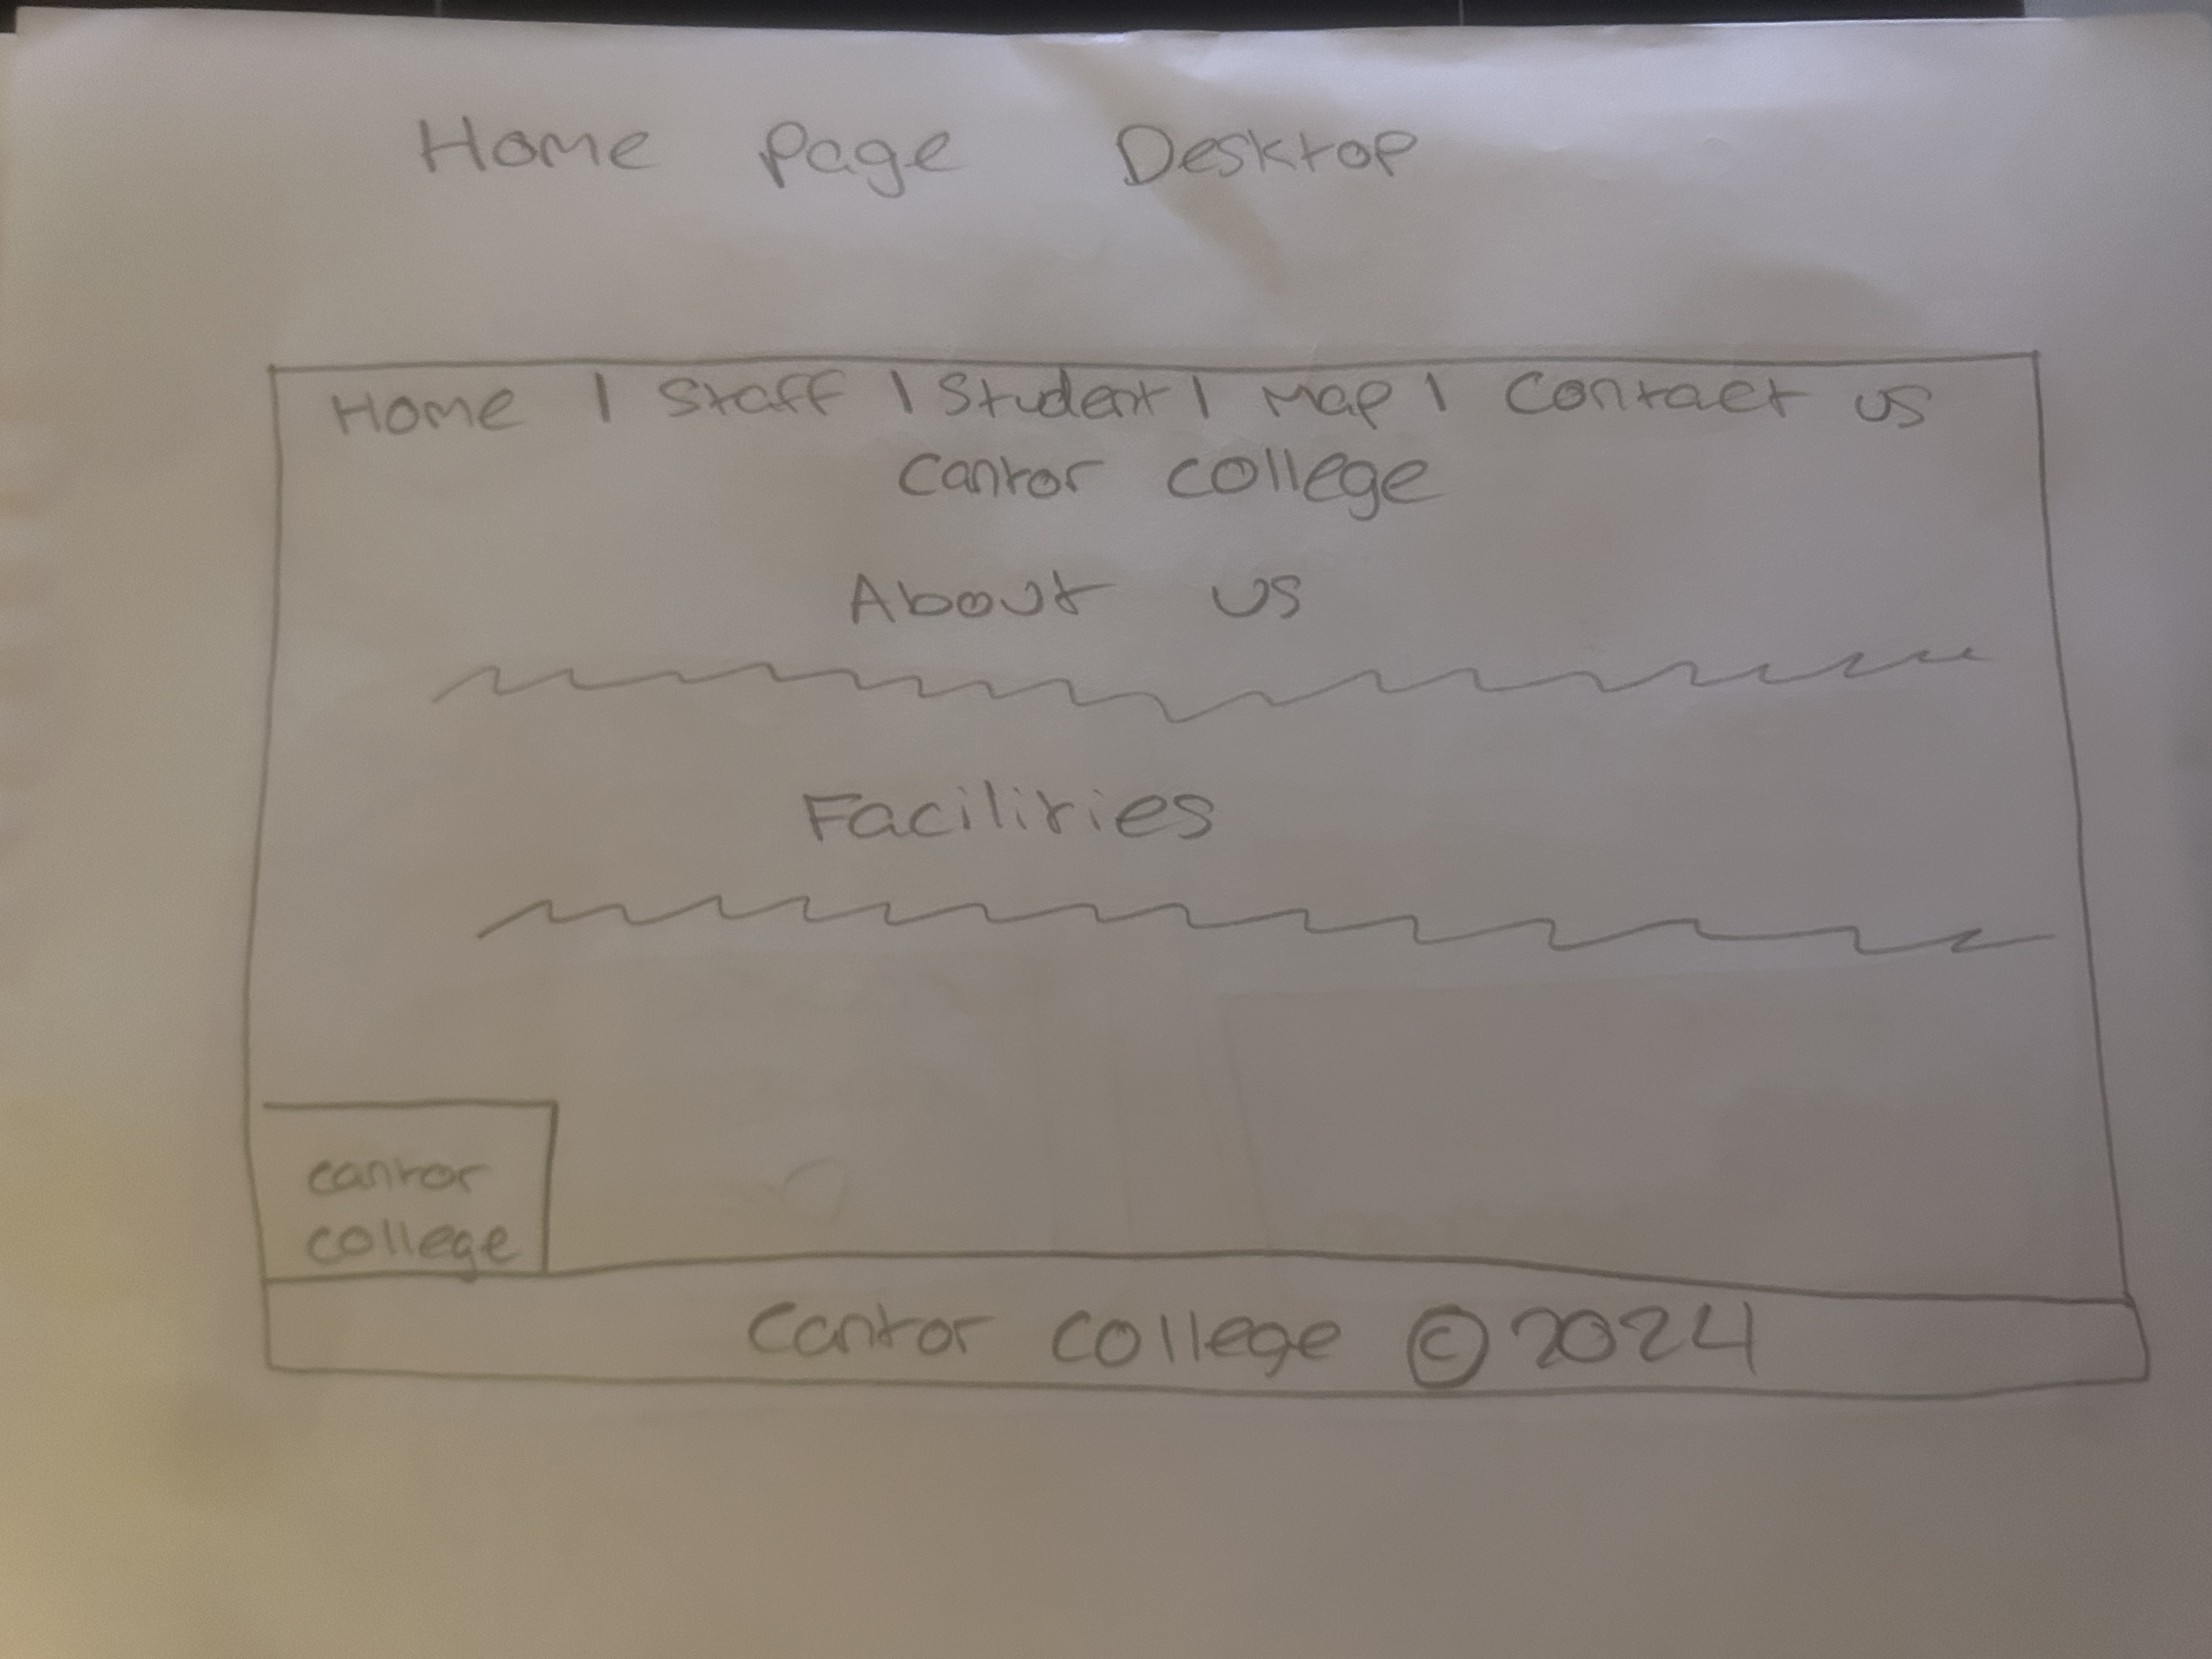 Home Page Desktop
Home | Staff | Student | Map | Contact us
Cantor College
About us
Facilities
Cantor
College
Cantor College © 2024